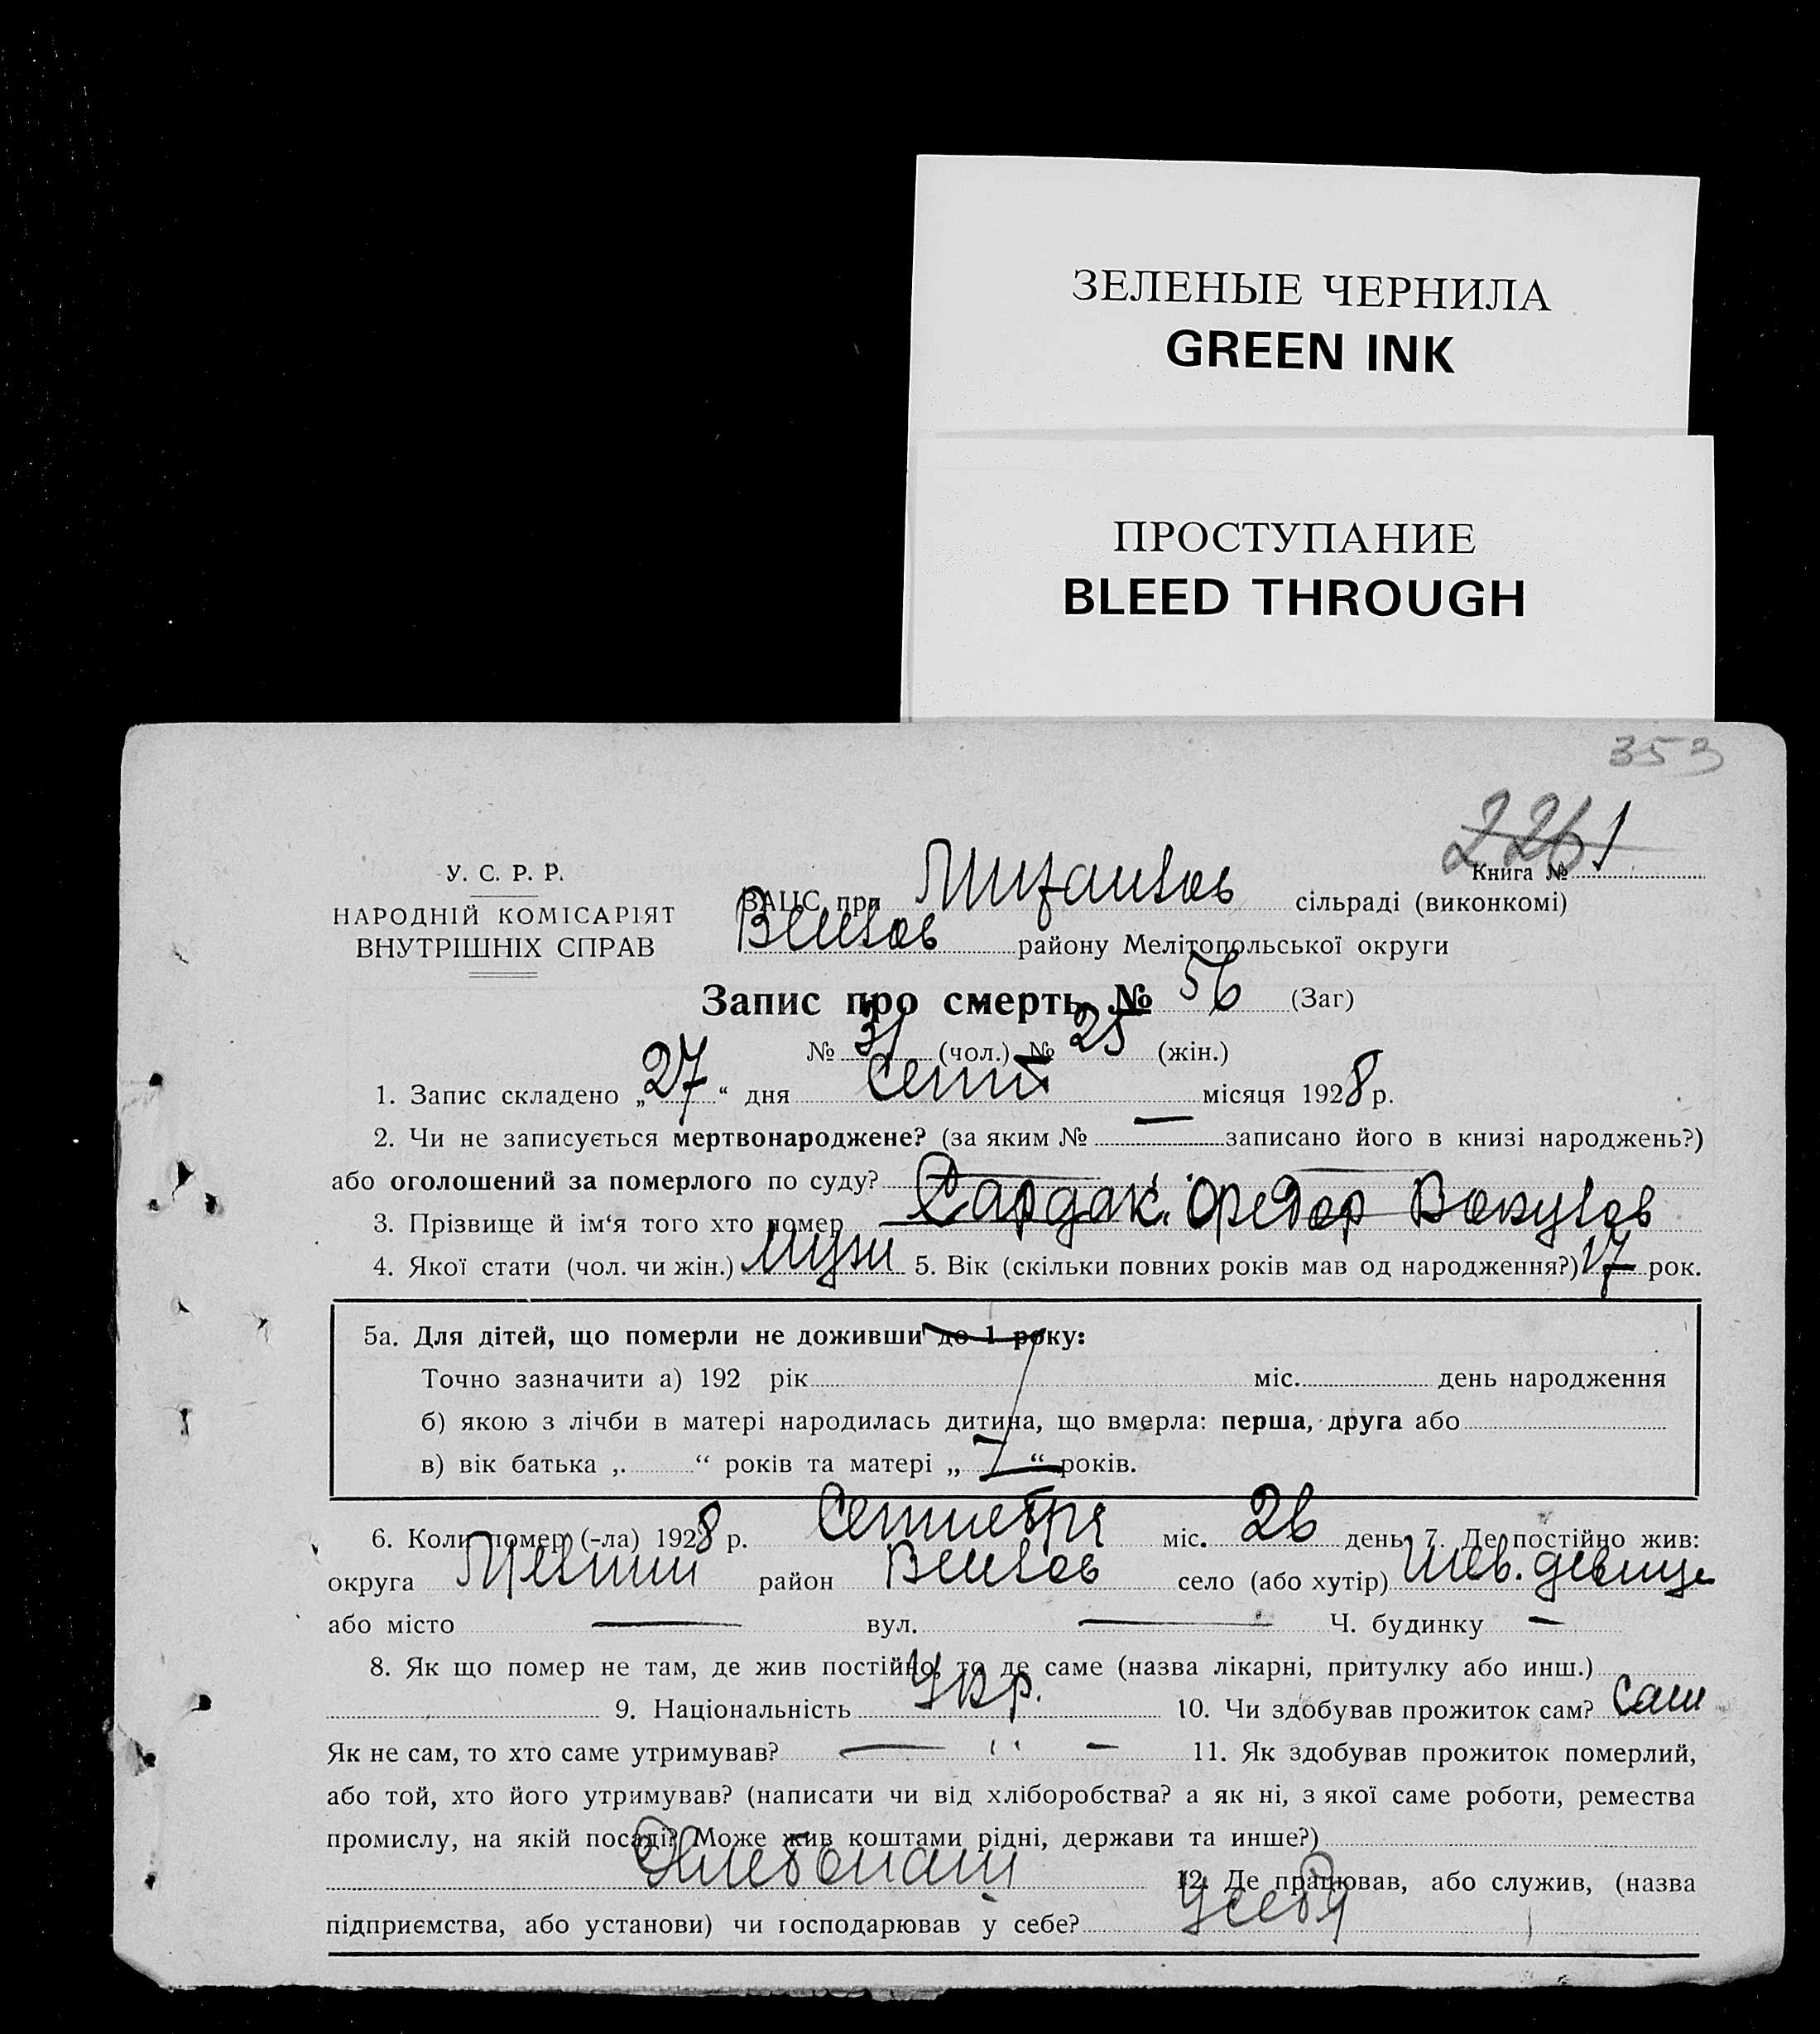 ЗЕЛЕНЫЕ ЧЕРНИЛА
GREEN INK
ПРОСТУПАНИЕ
BLEED THROUGH
353
226 1
Книга №
У. С. Р. Р.
НАРОДНІЙ КОМІСАРІЯТ
ВНУТРІШНІХ СПРАВ
ЗАЦС при сільраді (виконкомі)
району Мелітопольської округи
Запис про смерть № 56 (Заг)
№ 31 (чол.) № 25 (жін.)
1. Запис складено „27“ дня Сент місяця 1928 р.
2. Чи не записується мертвонароджене? (за яким № — записано його в книзі народжень?)
або оголошений за померлого по суду?
3. Прізвище й ім‘я того хто помер Сардак. Федор Вакулов
4. Якої стати (чол. чи жін.) Мужч 5. Вік (скільки повних років мав од народження?) 17 рок.
5а. Для дітей, що померли не доживши до 1 року:
Точно зазначити а) 192 рік міс. день народження
б) якою з лічби в матері народилась дитина, що вмерла: перша, друга або
в) вік батька „ “ років та матері „ “ років.
6. Коли помер (-ла) 1928 р. Сентября міс. 26 день 7. Де постійно жив:
округа район село (або хутір)
або місто — вул. — Ч. будинку —
8. Як що помер не там, де жив постійно, то де саме (назва лікарні, притулку або инш.)
9. Національність Укр. 10. Чи здобував прожиток сам? Сам
Як не сам, то хто саме утримував? — " — 11. Як здобував прожиток померлий,
або той, хто його утримував? (написати чи від хліборобства? а як ні, з якої саме роботи, ремества
промислу, на якій посаді? Може жив коштами рідні, держави та инше?)
Хлебопаш 12. Де працював, або служив, (назва
підприємства, або установи) чи господарював у себе? У себя